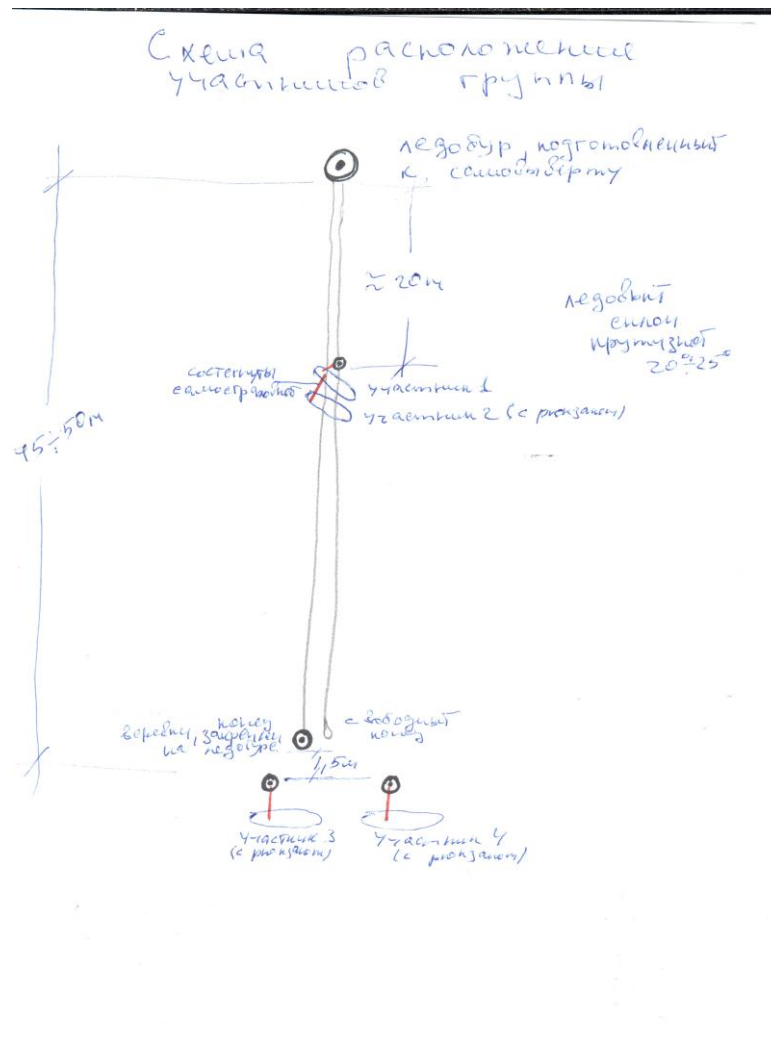 Схема расположение
участников группы
ледобур, подготовленный
к самовывёрту
≈ 20м
ледовый
склон
крутизной
20°÷25°
состегнуты
самостраховкой
участник 1
участник 2 (с рюкзаком)
45÷50м
конец
веревки, закреплен
на ледобуре
свободный
конец
1,5м
участник 3
(с рюкзаком)
участник 4
(с рюкзаком)